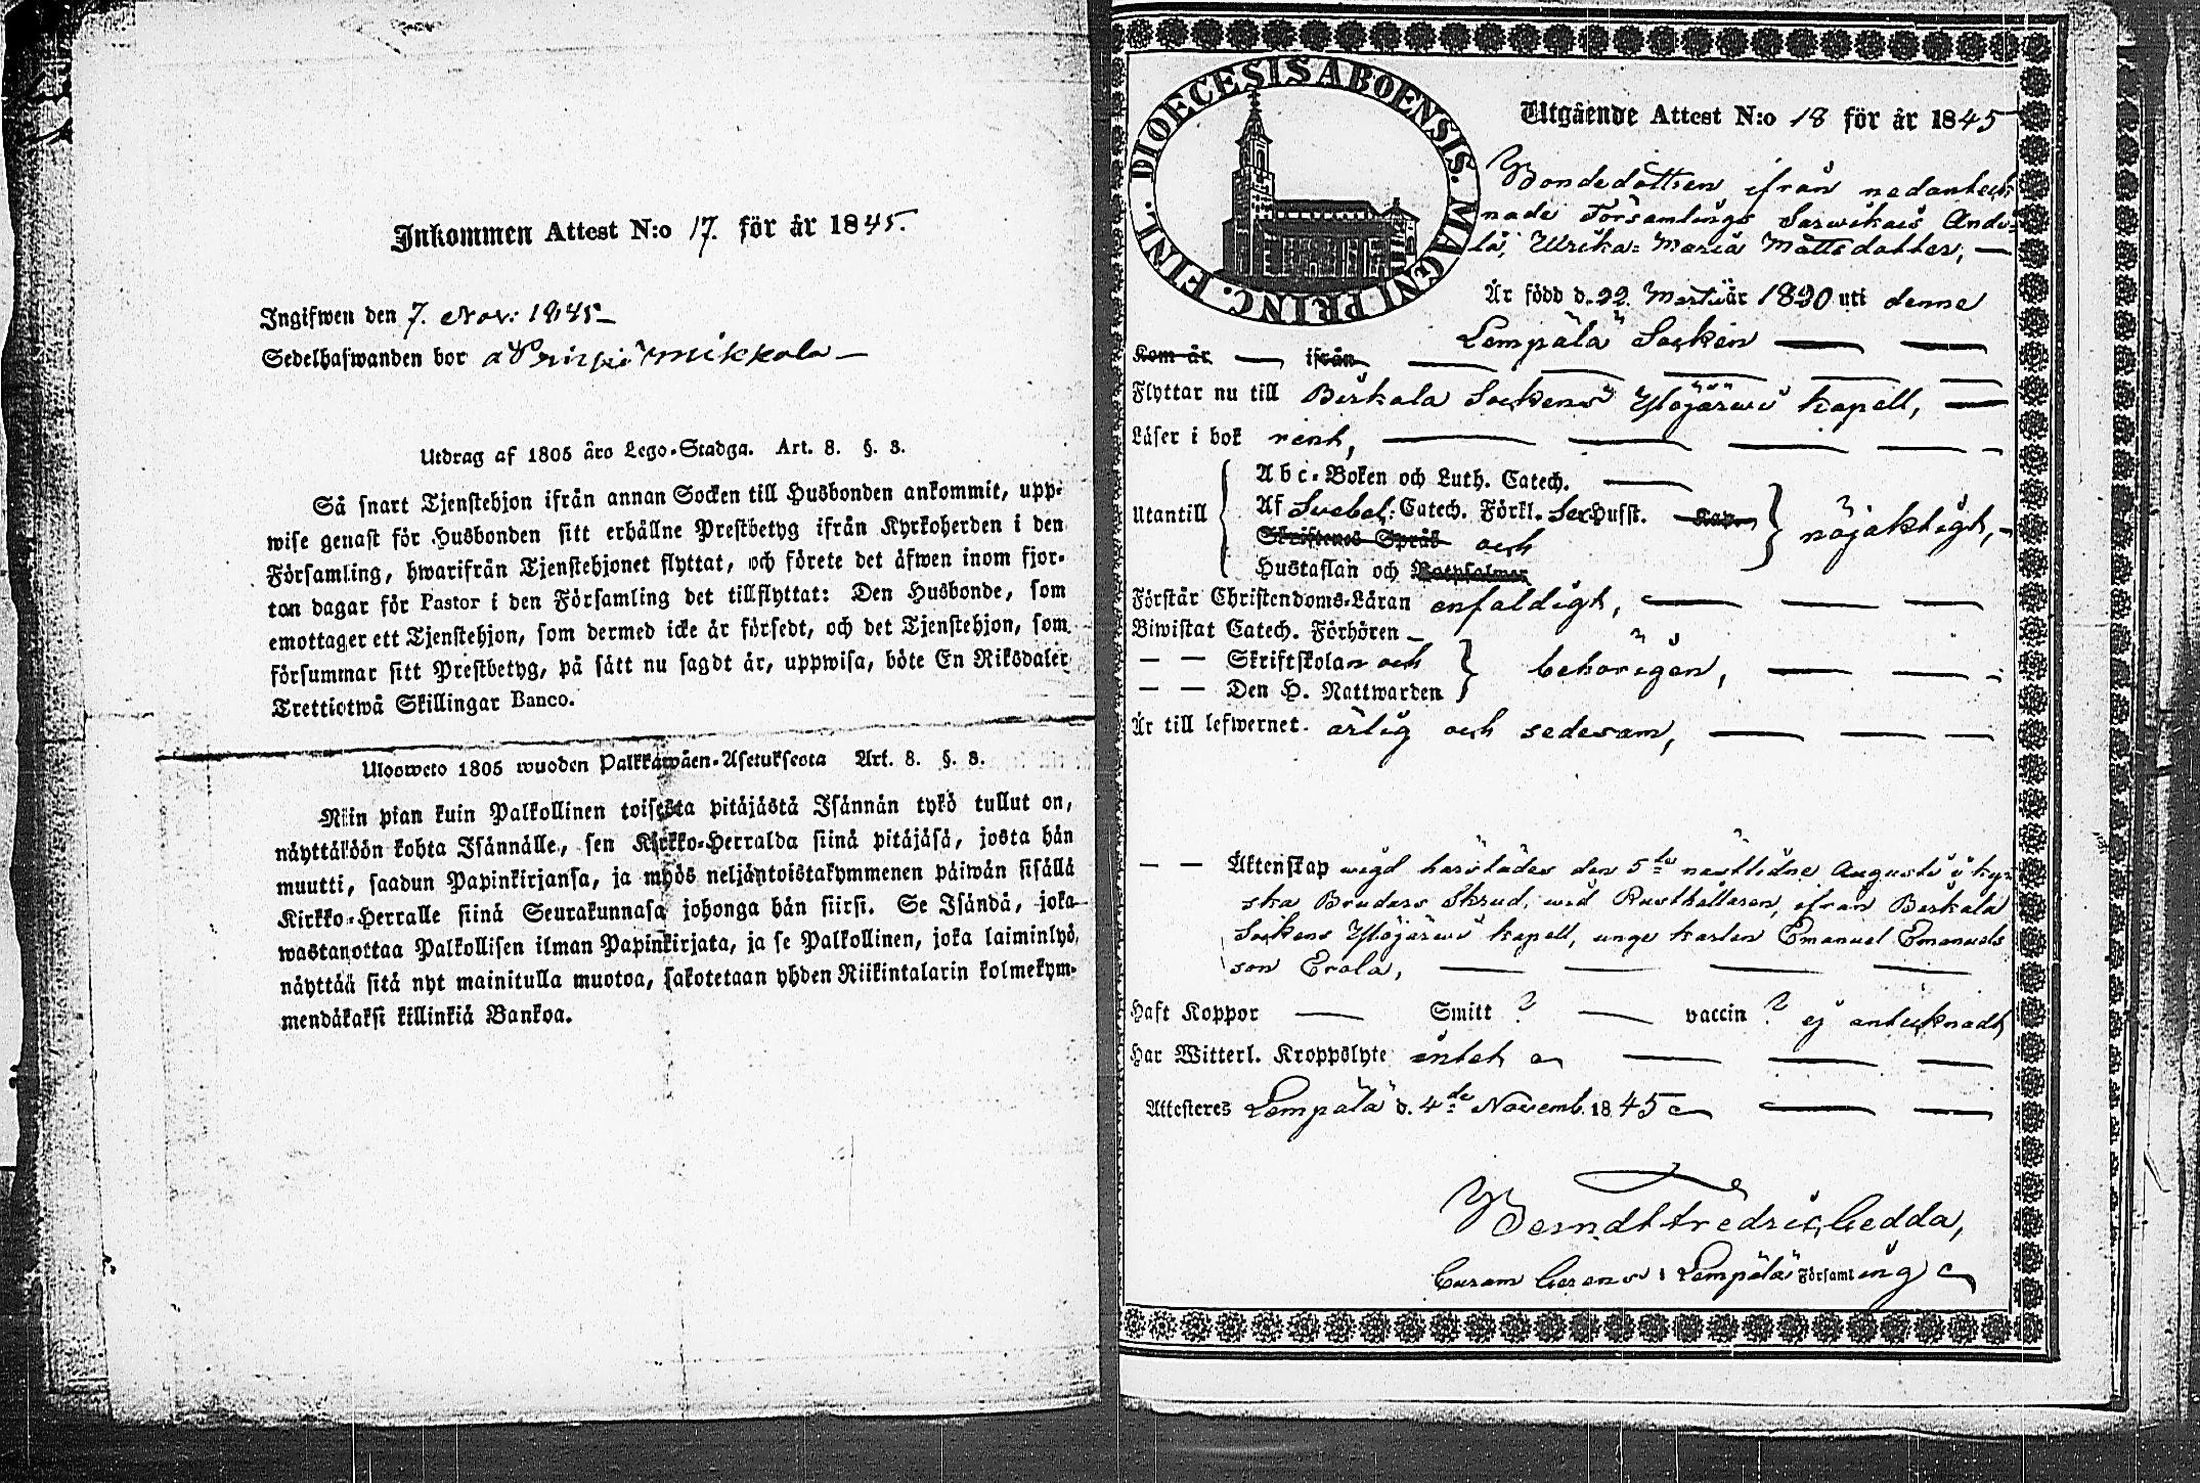 Inkommen Attest N:o 17. för år 1845.
Ingifwen den 7. Nov: 1845
Sedelhafwanden bor
Utdrag af 1805 års Lego-Stadga. Art. 8. §. 3.
Så snart Tjenstehjon ifrån annan Socken till Husbonden ankommit, upp-
wise genast för Husbonden sitt erhållne Prestbetyg ifrån Kyrkoherden i den
Församling, hwarifrån Tjenstehjonet flyttat, och förete det äfwen inom fjor-
ton dagar för Pastor i den Församling det tillflyttat: Den Husbonde, som
emottager ett Tjenstehjon, som dermed icke är försedt, och det Tjenstehjon, som
försummar sitt Prestbetyg, på sätt nu sagdt är, uppwisa, böte En Riksdaler
Trettiotwå Skillingar Banco.
Ulosweto 1805 wuoden Palkkawäen-Asetuksesta Art. 8. §. 3.
Niin pian kuin Palkollinen toisesta pitäjästä Isännän tykö tullut on,
näyttäköön kohta Isännälle, sen Kirkko-Herralda siinä pitäjäsä, josta hän
muutti, saadun Papinkirjansa, ja myös neljäntoistakymmenen päiwän sisällä
Kirkko-Herralle siinä Seurakunnasa johonga hän siirsi. Se Isändä, joka
wastanottaa Palkollisen ilman Papinkirjata, ja se Palkollinen, joka laiminlyö
näyttää sitä nyt mainitulla muotoa, sakotetaan yhden Riikintalarin kolmekym-
mendäkaksi killinkiä Bankoa.
DIOECESIS ABOENSIS. MAGNI PRINC. FINL.
Utgående Attest N:o 18 för år 1845
Bondedottren ifrån nedanteck-
nade Församlings Sarwikais
Ulrika Maria Mattsdotter,
Är född d. 22. Martii år 1820 uti denne
Lempälä Socken
Kom år ifrån
Flyttar nu till Birkala Sockens Ylöjärwi kapell,
Läser i bok rent,
Utantill
Abc-Boken och Luth. Catech.
Af Svebel. Catech. Förkl. Sex Husst. Kap.
Skriftenes Språk och
Hustaflan och Botpsalmer
nöjaktigt,
Förstår Christendoms-Läran enfaldigt,
Biwistat Catech. Förhören
— — Skriftskolan och
— — Den H. Nattwarden
behörigen,
Är till lefwernet ärlig och sedesam,
— — Äktenskap wigd härstädes den 5te nästlidne Augusti i ky-
ska Brudars Skrud, wid Rusthållaren, ifrån Birkala
Sockens Ylöjärwi kapell, unge karlen Emanuel Emanuels
son Erola,
Haft Koppor Smitt ? vaccin ? ej antecknadt
Har Witterl. Kroppslyte intet
Attesteres Lempälä d. 4de Novemb. 1845
Berndt Fredric Gedda,
Curam Gerens i Lempälä Församling